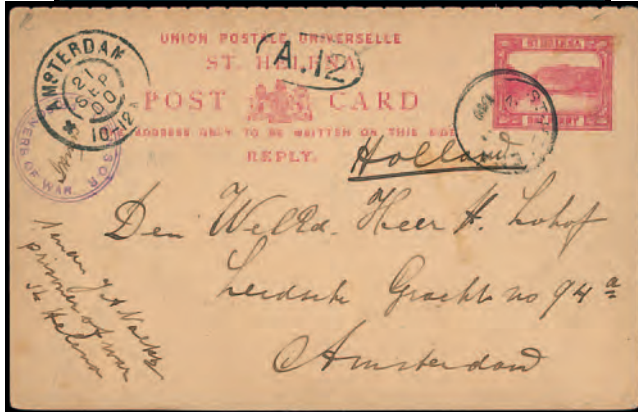 UNION POSTALE UNIVERSELLE
ST. HELENA
POST CARD
THE ADDRESS ONLY TO BE WRITTEN ON THIS SIDE
REPLY.
A.12
AMSTERDAM
21
SEP
00
10-12
PRISONERS OF WAR
ST HELENA
Holland
Den Heer H. Lohof
Leidsche Gracht no 94 a
Amsterdam
prisoner of war
St Helena